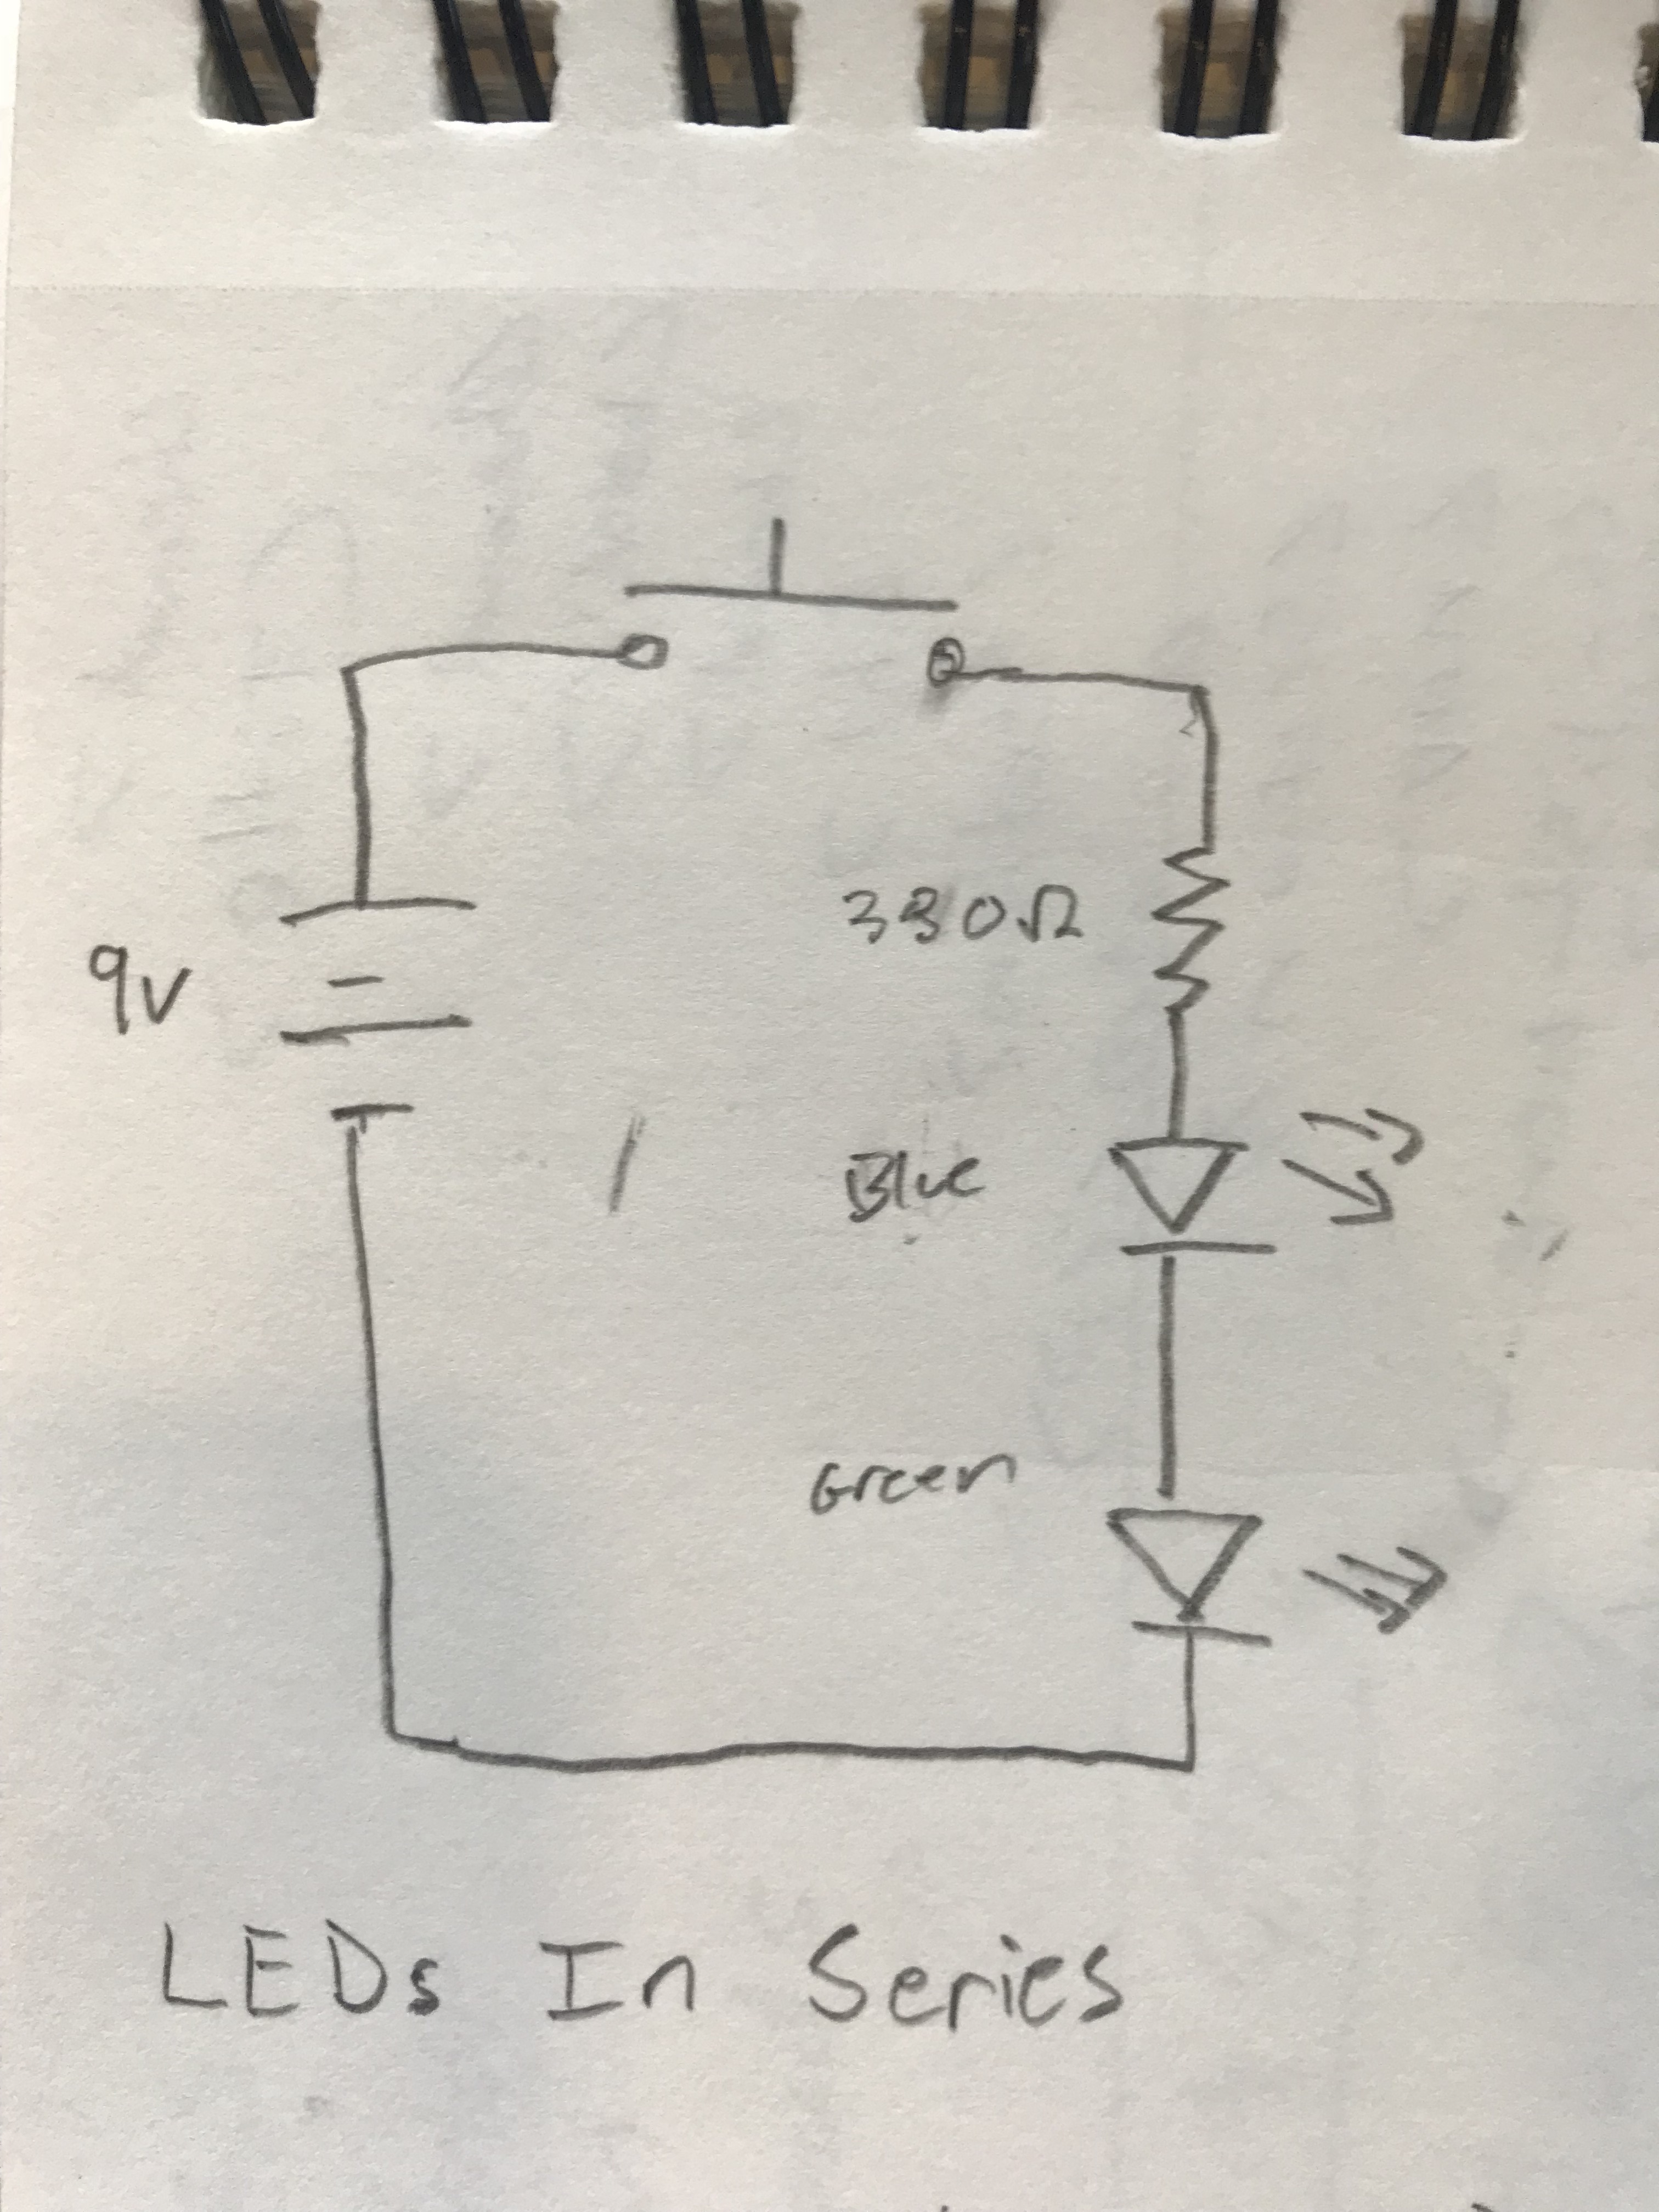 9v
Blue
Green
LEDs In Series